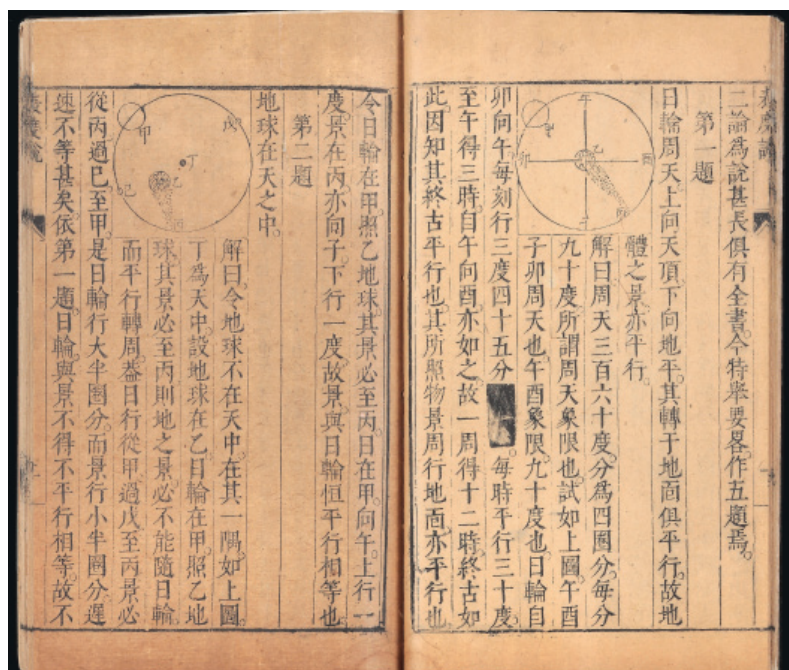 二論為說甚長俱有全書今特舉要畧作五題焉
第一題
日輪周天上向天頂下向地平其轉于地面俱平行故地
體之景亦平行
解曰周天三百六十度分為四圈分每分
九十度所謂周天象限也試如上圖午酉
子卯周天也午酉象限九十度也日輪自
卯向午每刻行三度四十五分 每時平行三十度
至午得三時自午向酉亦如之故一周得十二時終古如
此因知其終古平行也其所照物景周行地面亦平行也
午
酉
卯
乙
今日輪在甲照乙地球其景必至丙日在甲向午上行一
度景在丙亦向子下行一度故景與日輪恒平行相等也
第二題
地球在天之中
解曰令地球不在天中在其一隅如上圖
丁為天中設地球在乙日輪在甲照乙地
球其景必至丙則地之景必不能隨日輪
而平行轉周葢日行從甲過戊至丙景必
從丙過巳至甲是日輪行大半圈分而景行小半圈分遲
速不等甚矣依第一題日輪與景不得不平行相等故不
甲
戊
丁
乙
巳
丙